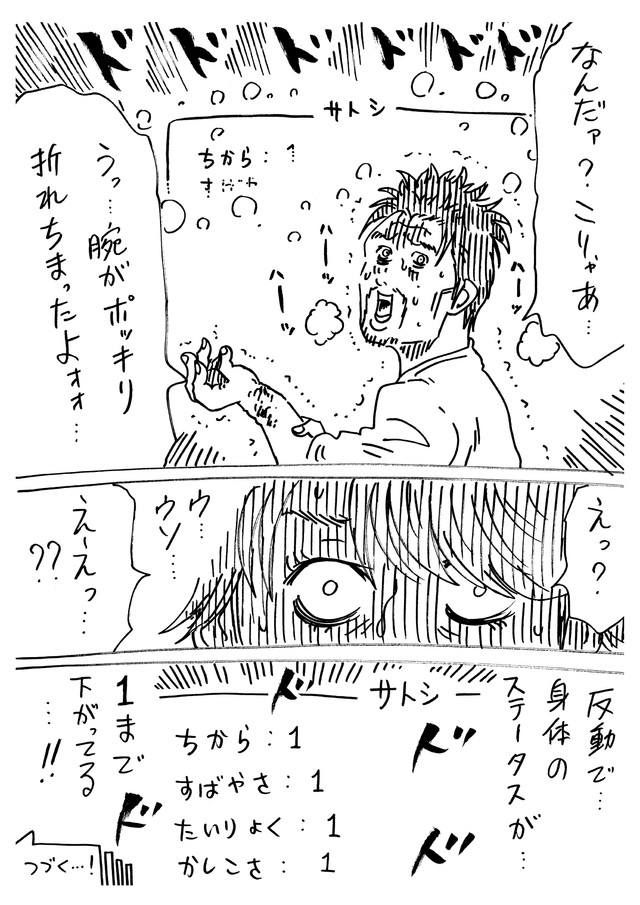 ド ド ド ド ド ド
なんだァ?こりゃあ…
サトシ
ちから:1
ハーッ
ハーッ
ハーッ
うっ…腕がポッキリ
折れちまったよォォ…
えっ?
ウ…
ウソ…
えーえっ…
??
反動で…
身体の
ステータスが…
ド
サトシ
ちから:1
すばやさ:1
たいりょく:1
かしこさ:1
ド
ド
1まで
下がってる
…!!
ド
つづく…!